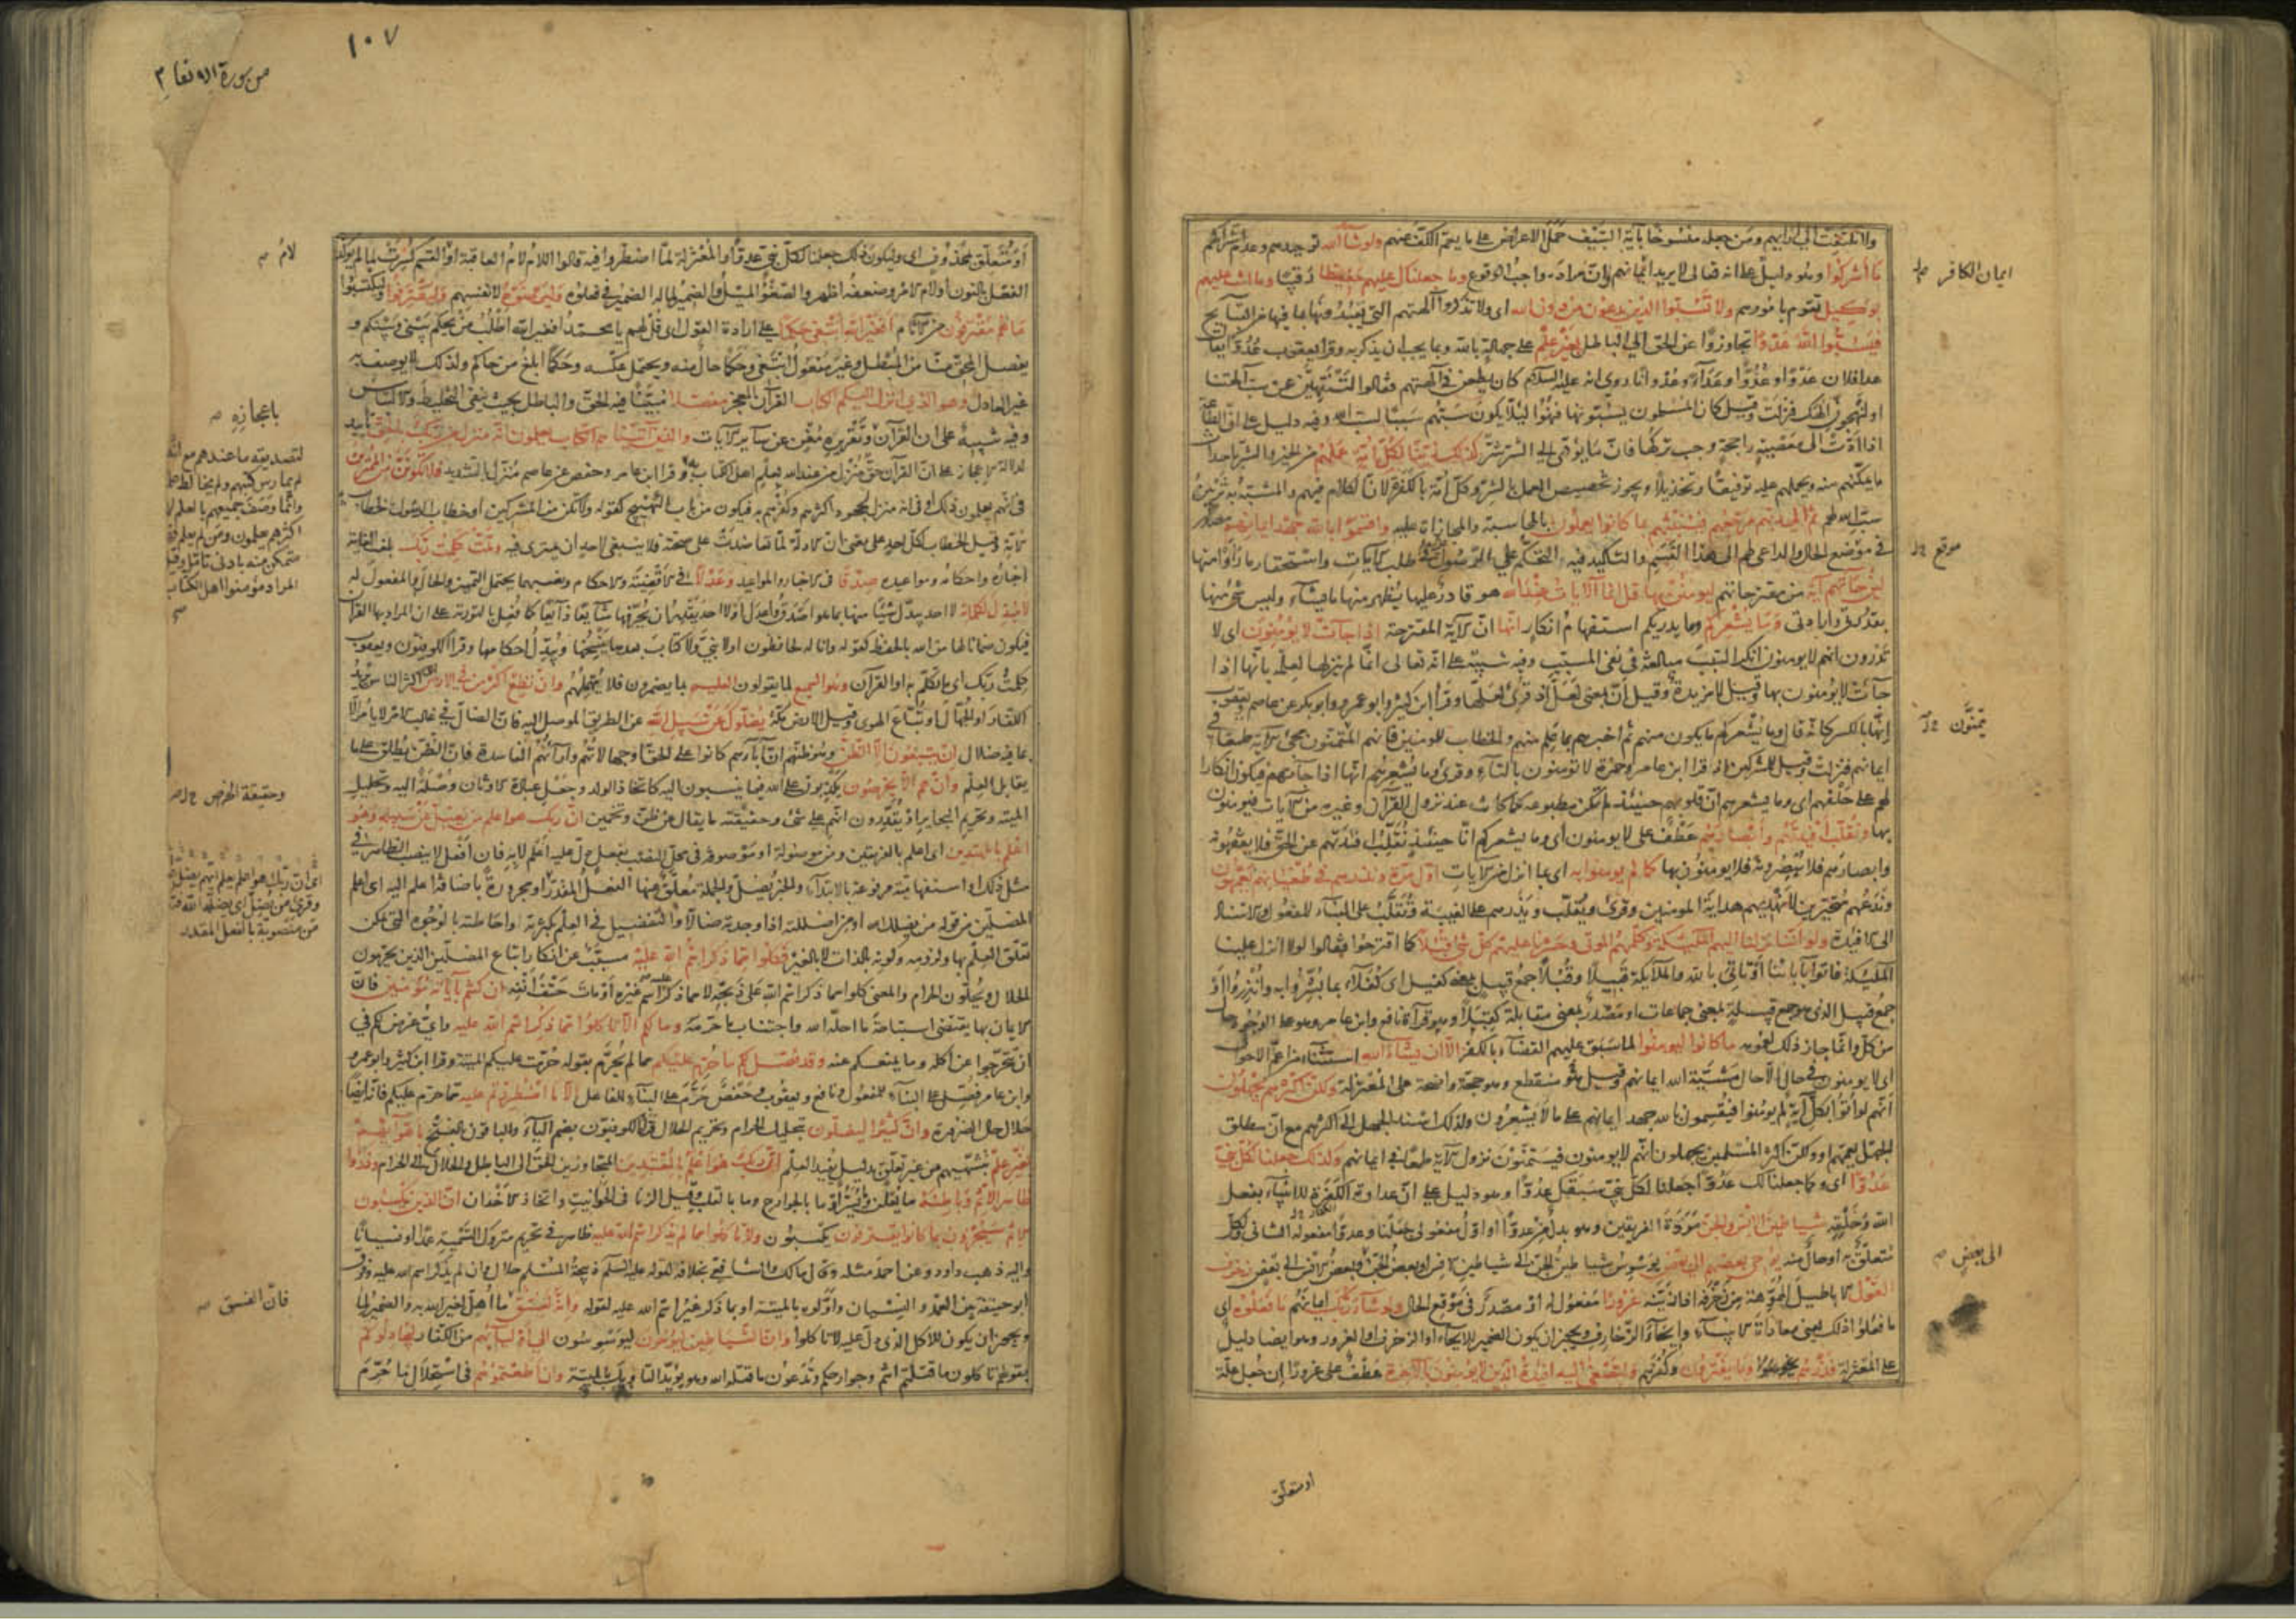 ولا تلتفت الى آرائهم ومن جعله منسوخا بآية السيف حمل الاعراض على ما يعم الكف عنهم ولو شاء الله توحيدهم وعدم اشراكهم
ما أشركوا وهو دليل على انه تعالى لا يريد ايمانهم وان مراده واجب الوقوع وما جعلناك عليهم حفيظا رقيبا وما انت عليهم
بوكيل تقوم بامورهم ولا تسبوا الذين يدعون من دون الله اى ولا تذكروا آلهتهم التى يعبدونها بما فيها من القبايح
فيسبوا الله عدوا تجاوزا عن الحق الى الباطل بغير علم على جهالة بالله وبما يجب ان يذكر به وقرأ يعقوب عدوا يقال
عدا فلان عدوا وعدوا وعداء وعدوانا روى انه عليه السلام كان يطعن فى آلهتهم فقالوا لتنتهين عن سب آلهتنا
او لنهجون الهك فنزلت وقيل كان المسلمون يسبونها فنهوا لئلا يكون سبهم سببا لسب الله وفيه دليل على ان الطاعة
اذا ادت الى معصية راجحة وجب تركها فان ما يؤدى الى الشر شر كذلك زينا لكل امة عملهم من الخير والشر باحداث
ما يمكنهم منه ويحملهم عليه توفيقا وتخذيلا ويجوز تخصيص العمل بالشر وكل امة بالكفرة لان الكلام فيهم والمشبه به تزيين
سب الله لهم ثم الى ربهم مرجعهم فينبئهم بما كانوا يعملون بالمحاسبة والمجازات عليه واقسموا بالله جهد ايمانهم مصدر
فى موضع الحال والداعى لهم الى هذا القسم والتاكيد فيه التحكم على الرسول فى طلب الآيات واستحقار ما رأوا منها
لئن جاءتهم آية من مقترحاتهم ليؤمنن بها قل انما الآيات عند الله هو قادر عليها يظهر منها ما يشاء وليس شئ منها
بقدرتى وارادتى وما يشعركم وما يدريكم استفهام انكار انها ان الآية المقترحة اذا جاءت لا يؤمنون اى لا
تدرون انهم لا يؤمنون انكر السبب مبالغة فى نفى المسبب وفيه تنبيه على انه تعالى انما لم ينزلها لعلمه بانها اذا
جاءت لا يؤمنون بها وقيل لا مزيدة وقيل ان بمعنى لعل اذ قرئ لعلها وقرأ ابن كثير وابو عمرو وابو بكر عن عاصم ويعقوب
انها بالكسر كانه قال وما يشعركم ما يكون منهم ثم اخبرهم بما علم منهم والخطاب للمؤمنين فانهم يتمنون مجئ الآية طمعا فى
ايمانهم فنزلت وقيل للمشركين اذ قرأ ابن عامر وحمزة لا تؤمنون بالتاء وقرئ وما يشعرهم انها اذا جاءتهم فيكون انكارا
لهم على حلفهم اى وما يشعرهم ان قلوبهم حينئذ لم تكن مطبوعة كما كانت عند نزول القرآن وغيره من الآيات فيؤمنون
بها ونقلب افئدتهم وابصارهم عطف على لا يؤمنون اى وما يشعركم انا حينئذ نقلب افئدتهم عن الحق فلا يفقهونه
وابصارهم فلا يبصرونه فلا يؤمنون بها كما لم يؤمنوا به اى بما انزل من الآيات اول مرة ونذرهم فى طغيانهم يعمهون
وندعهم متحيرين لا نهديهم هداية المؤمنين وقرئ ويقلب ويذرهم على الغيبة وتقلب على البناء للمفعول والاسناد
الى الافئدة ولو اننا نزلنا اليهم الملئكة وكلمهم الموتى وحشرنا عليهم كل شئ قبلا كما اقترحوا فقالوا لولا انزل علينا
الملئكة فاتوا بآبائنا او تاتى بالله والملائكة قبيلا وقبلا جمع قبيل بمعنى كفيل اى كفلاء بما بشروا به وانذروا او
جمع قبيل الذى هو جمع قبيلة بمعنى جماعات او مصدر بمعنى مقابلة كقبلا وهو قرآة نافع وابن عامر وهو على الوجوه حال
من كل وانما جاز ذلك لعمومه ما كانوا ليؤمنوا لما سبق عليهم القضاء بالكفر الا ان يشاء الله استثناء من اعم الاحوال
اى لا يؤمنون فى حال الا حال مشية الله ايمانهم وقيل هو منقطع وهو حجة واضحة على المعتزلة ولكن اكثرهم يجهلون
انهم لو اوتوا بكل آية لم يؤمنوا فيقسمون بالله جهد ايمانهم على ما لا يشعرون ولذلك اسند الجهل الى اكثرهم مع ان مطلق
الجهل يعمهم او ولكن اكثر المسلمين يجهلون انهم لا يؤمنون فيتمنون نزول الآية طمعا فى ايمانهم وكذلك جعلنا لكل نبى
عدوا اى وكما جعلنا لك عدوا جعلنا لكل نبى سبقك عدوا وهو دليل على ان عداوة الكفرة للانبياء بفعل
الله وخلقه شياطين الانس والجن مردة الفريقين وهو بدل من عدوا او اول مفعولى جعلنا وعدوا مفعوله الثانى ولكل
متعلق به او حال منه يوحى بعضهم الى بعض يوسوس شياطين الجن الى شياطين الانس او بعض الجن وبعض الانس الى بعض زخرف
القول الاباطيل المموهة من زخرفه اذا زينه غرورا مفعول له او مصدر فى موقع الحال ولو شاء ربك ايمانهم ما فعلوه اى
ما فعلوا ذلك يعنى معاداة الانبياء وايحاء الزخارف ويجوز ان يكون الضمير للايحاء او الزخرف او الغرور وهو ايضا دليل
على المعتزلة فذرهم وما يفترون وكفرهم ولتصغى اليه افئدة الذين لا يؤمنون بالآخرة عطف على غرورا ان جعل علة
ايمان الكافر
موقع
يتمنون
الى بعض
او متعلق
١٠٧
من سورة الانعام
او متعلق بمحذوف اى وليكون ذلك جعلنا لكل نبى عدوا والمعتزلة لما اضطروا فيه قالوا اللام لام العاقبة او القسم كسرت لما لم يؤكد
الفعل بالنون او لام الامر وضعفه اظهر والصغو الميل والضمير لما له الضمير فى فعلوه وليرضوه لانفسهم وليقترفوا وليكتسبوا
ما هم مقترفون من الآثام افغير الله ابتغى حكما على ارادة القول اى قل لهم يا محمد افغير الله اطلب من يحكم بينى وبينكم و
يفصل المحق منا من المبطل وغير مفعول ابتغى وحكما حال منه ويحتمل عكسه وحكما ابلغ من حاكم ولذلك لا يوصف به
غير العادل وهو الذى انزل اليكم الكتاب القرآن المعجز مفصلا مبينا فيه الحق والباطل بحيث ينفى التخليط والالتباس
وفيه تنبيه على ان القرآن وتقريره مغن عن ساير الآيات والذين آتيناهم الكتاب يعلمون انه منزل من ربك بالحق تاييد
لدلالة الاعجاز على ان القرآن حق منزل من عند الله يعلم اهل الكتاب به وقرأ ابن عامر وحفص عن عاصم منزل بالتشديد فلا تكونن من الممترين
فى انهم يعلمون ذلك او فى انه منزل لجحود اكثرهم وكفرهم به فيكون من باب التهييج كقوله ولا تكونن من المشركين او خطاب الرسول لخطاب
الامة وقيل الخطاب لكل احد على معنى ان الادلة لما تعاضدت على صحته فلا ينبغى لاحد ان يمترى فيه وتمت كلمت ربك بلغت الغاية
اخباره واحكامه ومواعيده صدقا فى الاخبار والمواعيد وعدلا فى الاقضية والاحكام ونصبهما يحتمل التمييز والحال والمفعول له
لا مبدل لكلماته لا احد يبدل شيئا منها بما هو اصدق واعدل او لا احد يقدر ان يحرفها شايعا ذايعا كما فعل بالتورية على ان المراد بها القرآن
فيكون ضمانا لها من الله بالحفظ كقوله وانا له لحافظون او لا نبى ولا كتاب بعدها ينسخها ويبدل احكامها وقرأ الكوفيون ويعقوب
كلمت ربك اى ما تكلم به او القرآن وهو السميع لما يقولون العليم بما يضمرون فلا يهملهم وان تطع اكثر من فى الارض اى اكثر الناس يريد
الكفار او الجهال او تباع الهوى وقيل الارض مكة يضلوك عن سبيل الله عن الطريق الموصل اليه فان الضال فى غالب الامر لا يأمر الا
بما فيه ضلال ان يتبعون الا الظن وهو ظنهم ان آباءهم كانوا على الحق او جهالاتهم وآراءهم الفاسدة فان الظن يطلق على ما
يقابل العلم وان هم الا يخرصون يكذبون على الله فيما ينسبون اليه كاتخاذ الولد وجعل عبادة الاوثان وصلة اليه وتحليل
الميتة وتحريم البحاير او يقدرون انهم على شئ وحقيقته ما يقال عن ظن وتخمين ان ربك هو اعلم من يضل عن سبيله وهو
اعلم بالمهتدين اى اعلم بالفريقين ومن موصولة او موصوفة فى محل النصب بفعل دل عليه اعلم لا به فان افعل لا ينصب الظاهر فى
مثل ذلك او استفهامية مرفوعة بالابتداء والخبر يضل والجملة معلق عنها الفعل المقدر او مجرورة باضافة اعلم اليه اى اعلم
المضلين من قوله من يضلل الله او من اضللته اذا وجدته ضالا والتفضيل فى العلم بكثرته واحاطته بالوجوه التى يمكن
تعلق العلم بها ولزومه وكونه بالذات لا بالغير فكلوا مما ذكر اسم الله عليه مسبب عن انكار اتباع المضلين الذين يحرمون
الحلال ويحلون الحرام والمعنى كلوا مما ذكر اسم الله على ذبحه لا مما ذكر عليه اسم غيره او مات حتف انفه ان كنتم بآياته مؤمنين فان
الايمان بها يقتضى استباحة ما احله الله واجتناب ما حرمه وما لكم الا تاكلوا مما ذكر اسم الله عليه واى غرض لكم فى
ان تتحرجوا عن اكله وما يمنعكم عنه وقد فصل لكم ما حرم عليكم مما لم يحرم بقوله حرمت عليكم الميتة وقرأ ابن كثير وابو عمرو
وابن عامر فصل على البناء للمفعول ونافع ويعقوب وحفص حرم على البناء للفاعل الا ما اضطررتم اليه مما حرم عليكم فانه ايضا
حلال حال الضرورة وان كثيرا ليضلون بتحليل الحرام وتحريم الحلال قرأ الكوفيون بضم الياء والباقون بالفتح باهوائهم
بغير علم بتشهيهم من غير تعلق بدليل يفيد العلم ان ربك هو اعلم بالمعتدين المتجاوزين الحق الى الباطل والحلال الى الحرام وذروا
ظاهر الاثم وباطنه ما يعلن ويسر او ما بالجوارح وما بالقلب وقيل الزنا فى الحوانيت واتخاذ الاخدان ان الذين يكسبون
الاثم سيجزون بما كانوا يقترفون يكسبون ولا تاكلوا مما لم يذكر اسم الله عليه ظاهر فى تحريم متروك التسمية عمدا او نسيانا
واليه ذهب داود وعن احمد مثله وقال مالك والشافعى بخلافه لقوله عليه السلام ذبيحة المسلم حلال وان لم يذكر اسم الله عليه وفرق
ابو حنيفة بين العمد والنسيان واولوه بالميتة او بما ذكر غير اسم الله عليه لقوله وانه لفسق ما اهل لغير الله به والضمير لما
ويجوز ان يكون للاكل الذى دل عليه لا تاكلوا وان الشياطين ليوحون ليوسوسون الى اوليائهم من الكفار ليجادلوكم
بقولهم تاكلون ما قتلتم انتم وجوارحكم وتدعون ما قتله الله وهو يؤيد التاويل بالميتة وان اطعتموهم فى استحلال ما حرم
لام
باعجازه
لتصديقه ما عندهم مع انه
لم يمارس كتبهم ولم يخالط علما
وانما وصف جميعهم بالعلم لان
اكثرهم يعلمون ومن لم يعلم فهو
متمكن منه بادنى تامل وقيل
المراد مؤمنوا اهل الكتاب
وحقيقة الخرص
اى ان ربك هو اعلم يعلم ايهم يضل
وقرئ من يضل اى يضله الله فتكون
من منصوبة بالفعل المقدر
فان الفسق